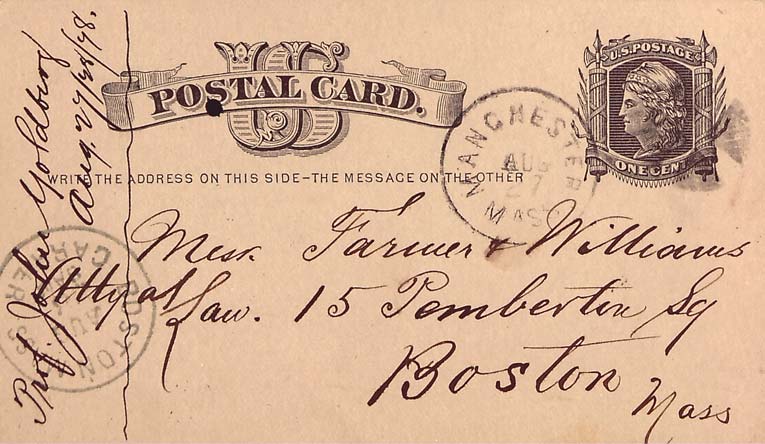 US
POSTAL CARD.
U.S. POSTAGE
ONE CENT
WRITE THE ADDRESS ON THIS SIDE–THE MESSAGE ON THE OTHER
MANCHESTER
AUG
27
MASS
Mess. Farmer & Williams
Atty at Law. 15 Pemberton Sq
Boston
Mass
Prof. John Goldberg
Aug. 27/28/78.
BOSTON
AUG
CARRIER